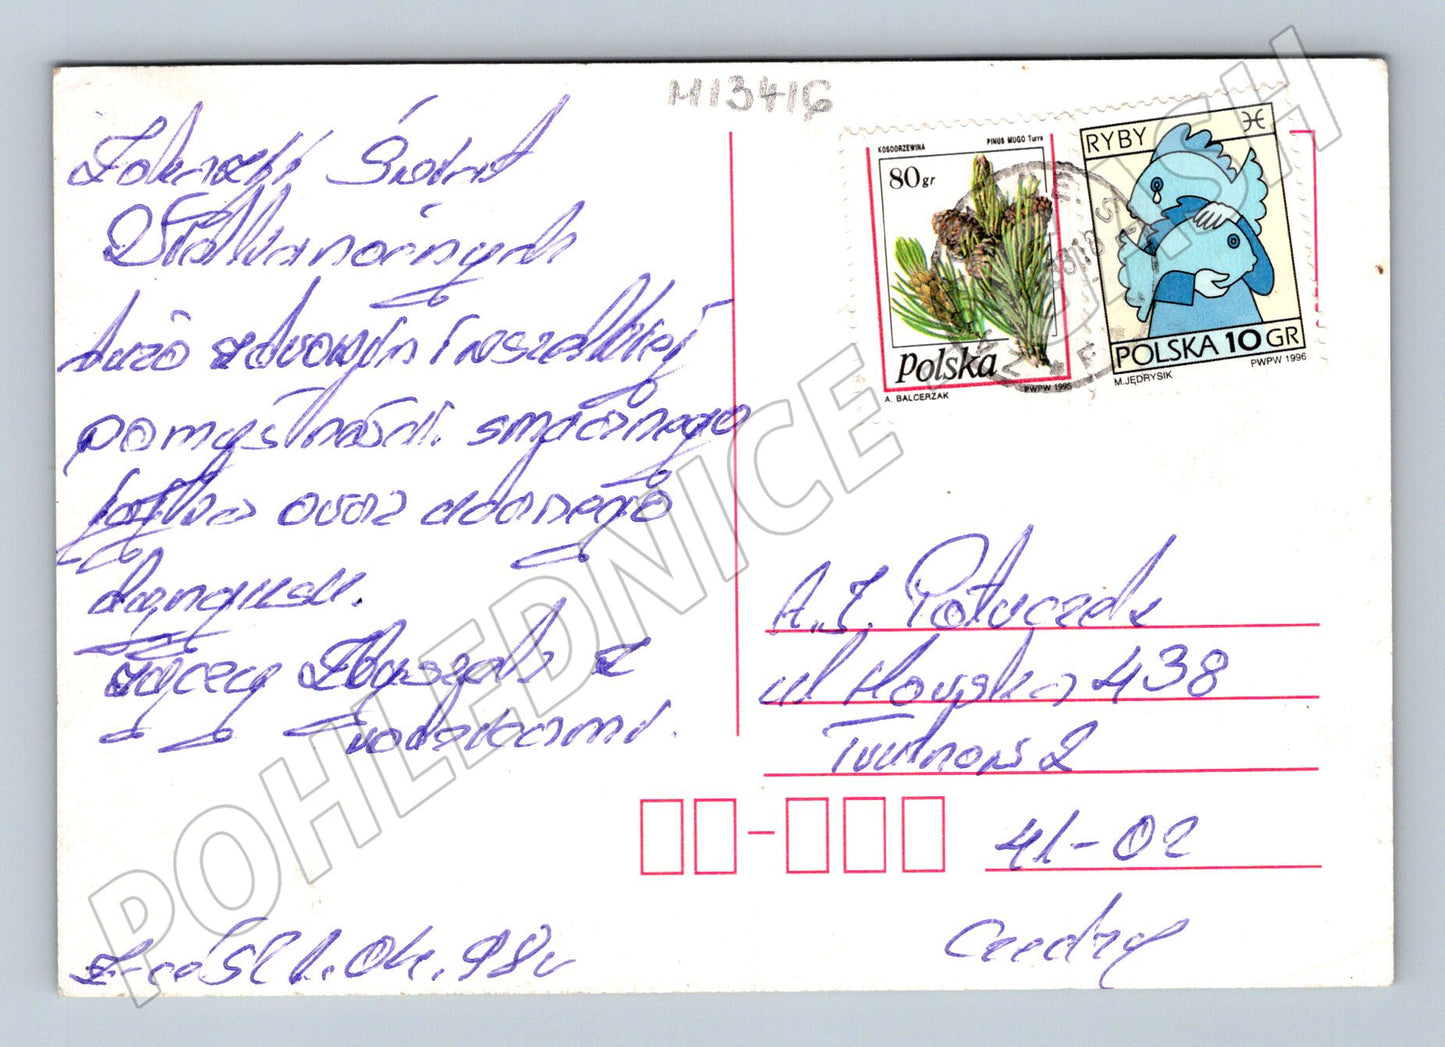 M13416
Z okazji Świąt
Wielkanocnych
dużo zdrowia i wszelkiej
pomyślności. smacznego
jajka oraz udanego
dyngusu.
życzy Zbyszek z
rodzicami.
1.04.98r
KOSODRZEWINA PINUS MUGO Turra
80gr
Polska
A. BALCERZAK PWPW 1995
RYBY
POLSKA 10 GR
M. JĘDRYSIK PWPW 1996
A.J. Potuczek
ul Horska 438
Trutnov 2
41-02
Czechy
POHLEDNICE